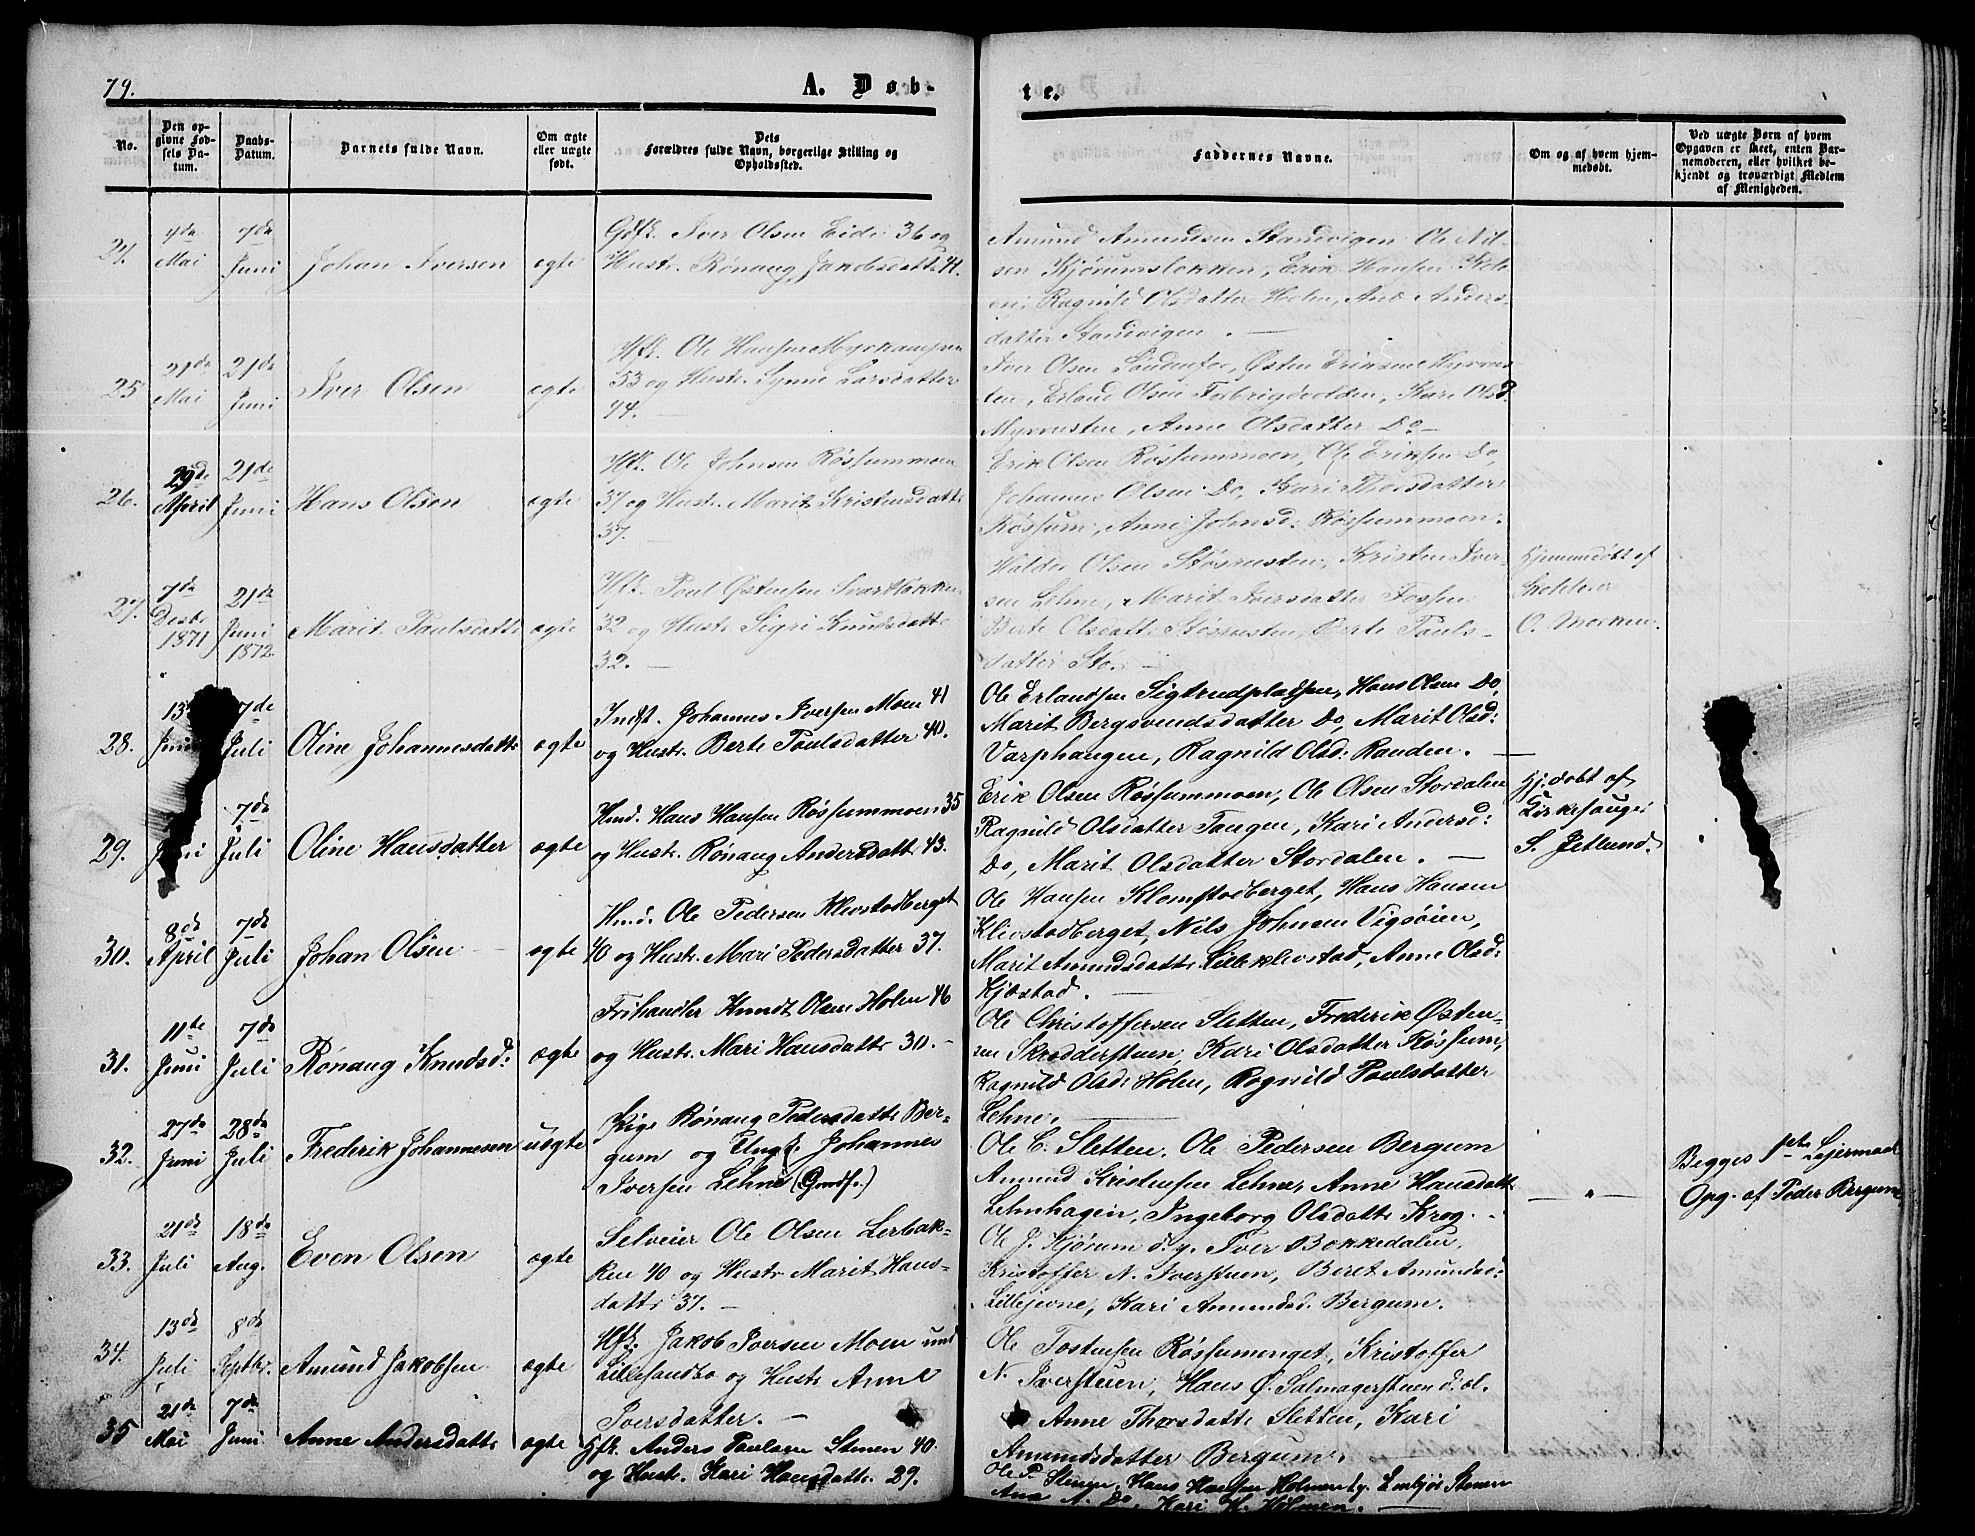 79.
A. Døb-
te.
No.
Den op-
givne Fød-
sels Da-
tum.
Daabs-
Datum.
Barnets fulde Navn.
Om ægte
eller uægte
født.
Dets
Forældres fulde Navn, borgerlige Stilling og
Opholdssted.
Faddernes Navne.
Om og af hvem hjem-
medøbt.
Ved uægte Børn af hvem
Opgaven er skeet, enten Bar-
nemoderen, eller hvilket be-
kjendt og troværdigt Medlem
af Menigheden.
24.
4de
Mai
7de
Juni
Johan Iversen
ægte
Gdbr. Iver Olsen Eide 36 og
Hustr. Rønaug Jakobsdatt. 41.
Amund Amundsen Standvigen Ole Nil-
sen Kjørumsløkken, Erik Hansen
Ragnild Olsdatter Holen, Ane Anders-
datter Standvigen. —
25
21de
Mai
21de
Juni
Iver Olsen
ægte
Hfk. Ole Hansen
53 og Hustr. Synne Larsdatter
44. —
Iver Olsen Østen Eriksen
Erland Olsen Kari Olsd.
Anne Olsdatter Do —
26.
29de
April
21de
Juni
Hans Olsen
ægte
Hfk. Ole Johnsen Røssummoen
37 og Hustr. Marit Kristensdatt.
37. —
Erik Olsen Røssummoen, Ole Eriksen Do,
Johannes Olsen Do, Kari Thorsdatter
Røssum, Anne Johnsd: Røssummoen.
27.
7de
Decbr.
1871
21de
Juni
1872.
Marit Paulsdatt.
ægte
Hfk. Poul Østensen Svartløkken
32 og Hustr. Sigri Knudsdatt.
32. —
Haldor Olsen Kristen Iver-
sen Lehne, Marit Iversdatter Fossen
Berte Olsdatt. Berte Pauls-
datter Sto. —
Hjemmedøbt af
Skolelærer
O. Morken.
28.
13
Juni
7de
Juli
Oline Johannesdatt.
ægte
Indst. Johannes Iversen Moen 41
og Hustr. Berte Poulsdatter 40.
Ole Erlandsen Sigtrudpladsen, Hans Olsen Do,
Marit Bergsvendsdatter Do, Marit Olsd:
Varphaugen, Ragnild Olsd: Randen. —
29.
Juni
7de
Juli
Oline Hansdatter
ægte
Hmd. Hans Hansen Røssummoen 35
og Hustr. Rønaug Andersdatt. 43.
Erik Olsen Røssummoen, Ole Olsen Stordalen
Ragnild Olsdatter Taugen, Kari Andersd:
Do, Marit Olsdatter Stordalen. —
Hj. døbt af
Kirkesanger
S. Jetlund.
30.
8de
April
7de
Juli
Johan Olsen
ægte
Hmd. Ole Pedersen Klevstadberget
40 og Hustr. Mari Pedersdatter 37.
Ole Hansen Klomstadberget, Hans Hansen
Klevstadberget, Nils Johnsen Vigsøien,
Marit Amundsdatt. Lilleklevstad, Anne Olsd:
Kjøstad. —
31.
11te
Juni
7de
Juli
Rønaug Knudsd:
ægte
Frihandler Knudt Olsen Holen 46
og Hustr. Mari Hansdatt. 30. —
Ole Christoffersen Sletten, Frederik Østen-
sen Skrædderstuen, Kari Olsdatter Røssum,
Ragnild Olsd: Holen, Ragnild Poulsdatter
Lehne. —
32.
27de
Juni
28de
Juli
Frederik Johannesen
uægte
Pige Rønaug Pedersdatt. Ber-
gum og Ungk. Johannes
Iversen Lehne (Gmdf.)
Ole C. Sletten, Ole Pedersen Bergum
Amund Kristensen Lehne, Anne Hansdatt.
Lehnhagen, Ingeborg Olsdatt. Krog. —
— " —
Begges 1ste Lejermaal
Opg. af Peder Bergum
33.
21de
Juli
18de
Aug.
Even Olsen
ægte
Selveier Ole Olsen Lerbak-
ken 40 og Hustr. Marit Hans-
datt. 37. —
Ole J. Kjørum d. y. Iver Bækkedalen,
Kristoffer N. Iverstuen, Beret Amundsd:
Lillejevne, Kari Amundsd. Bergum.
34.
13de
Juli
8de
Septbr.
Amund Jakobsen
ægte
Hfk. Jakob Iversen Moen und.
Lillesandbo og Hustr. Anne
Iversdatter. —
Ole Tostensen Røssumenget, Kristoffer
N. Iverstuen, Hans Ø. Salmagerstuen d. æl.
Anne Thorsdatt. Sletten, Kari
Amundsdatter Bergum.
35
21de
Mai
7de
Juni
Anne Andersdatt.
ægte
Hfk. Anders Paulsen Stenen 40.
og Hustr. Kari Hansdatt. 29.
Ole P. Stenen, Hans Hansen Holmen d.y. Embjør Stenen
Ane A. Do, Kari H. Holmen. —